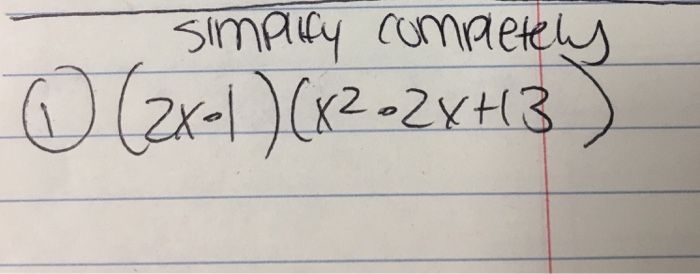 simplify completely
① (2x-1)(x²-2x+13)